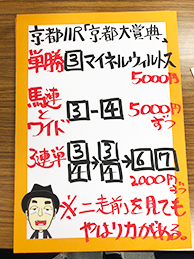 京都11R「京都大賞典」
単勝 3 マイネルウィルトス
5000円
馬連とワイド 3-4 5000円ずつ
3連単 3/4→3/4→6 7
2000円ずつ
※二走前を見ても
やはり力がある。